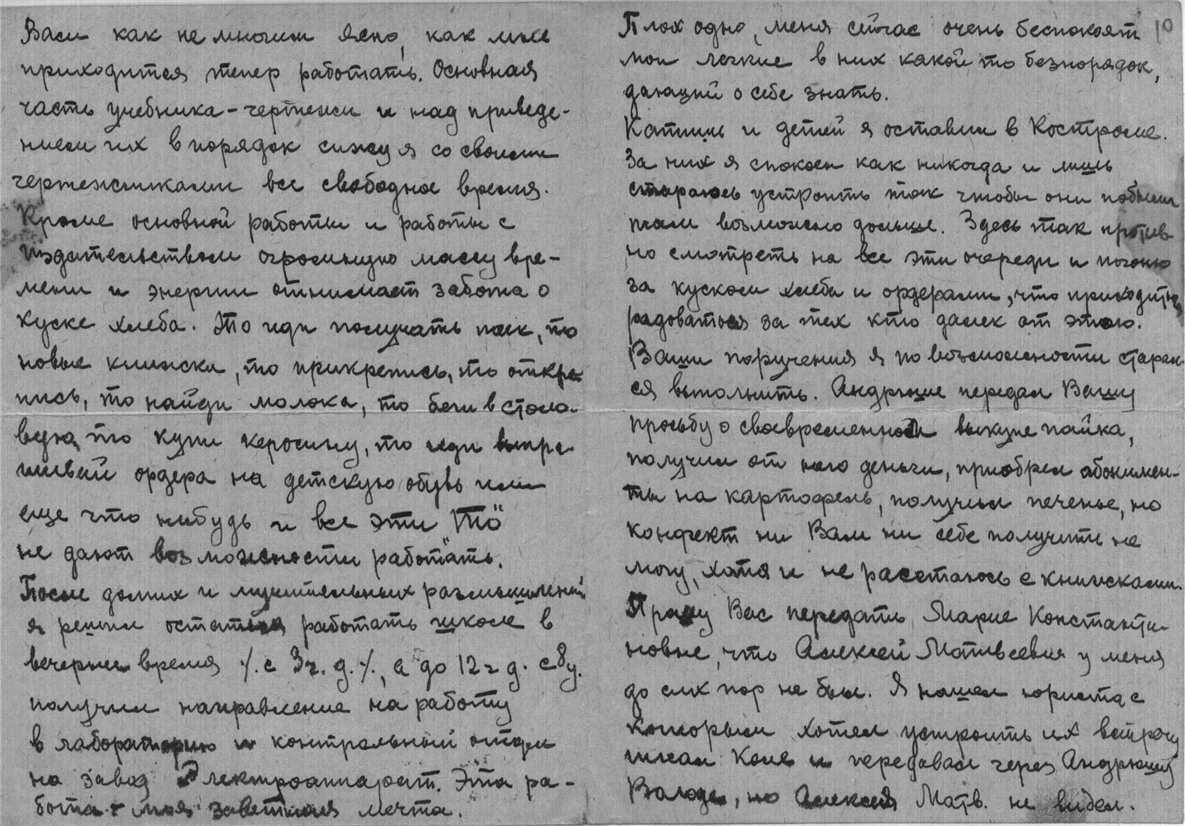 Вам как не многим ясно, как мне
приходится тепер работать. Основная
часть учебника - чертежи и над приведе-
нием их в порядок сижу я со своими
чертежниками все свободное время.
Кроме основной работы и работы с
издательством огромную массу вре-
мени и энергии отнимает забота о
куске хлеба. То иди получать паек, то
новые книжки, то прикрепись, то откре-
пись, то найди молока, то беги в столо-
вую, то купи керосину, то иди выпра-
шивай ордера на детскую обувь или
еще что нибудь и все эти "То"
не дают возможности работать.
После долгих и мучительных размышлений
я решил остаться работать школе в
вечернее время /. с 3ч. д. /., а до 12 ч д.
получил направление на работу
в лабораторию и контрольный отдел
на завод Электроаппарат. Эта ра-
бота - моя заветная мечта.
10
Плохо одно, меня сейчас очень беспокоят
мои легкие в них какой то безпорядок,
дающий о себе знать.
Катишь и детей я оставил в Костроме.
За них я спокоен как никогда и лишь
стараюсь устроить так чтобы они побыли
там возможно дольше. Здесь так против-
но смотреть на все эти очереди и погоню
за куском хлеба и ордерами, что приходится
радоваться за тех кто далек от этого.
Ваши поручения я по возможности старал-
ся выполнить. Андрюше передал Вашу
просьбу о своевременном выкупе пайка,
получил от него деньги, приобрел абонимен-
ты на картофель, получил печенье, но
конфект ни Вам ни себе получить не
могу, хотя и не расстаюсь с книжками.
Прошу Вас передать Марие Константи-
новне, что Алексей Матвеевич у меня
до сих пор не был. Я нашел юриста с
которым хотел устроить их встречу
писал Коле и передавал через Андрюшу
Володе, но Алексея Матв. не видел.